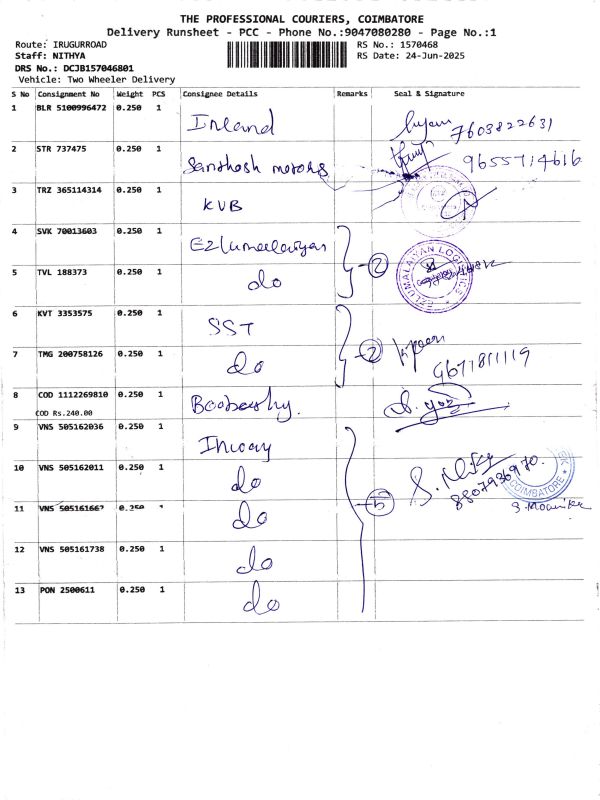 THE PROFESSIONAL COURIERS, COIMBATORE
Delivery Runsheet - PCC - Phone No.:9047080280 - Page No.:1
Route: IRUGURROAD
RS No.: 1570468
Staff: NITHYA
RS Date: 24-Jun-2025
DRS No.: DCJB157046801
Vehicle: Two Wheeler Delivery
S No Consignment No Weight PCS Consignee Details Remarks Seal & Signature
1 BLR 5100996472 0.250 1 Inland 7603822631
2 STR 737475 0.250 1 Santhosh motors 9655714616
3 TRZ 365114314 0.250 1 KVB
4 SVK 70013603 0.250 1
5 TVL 188373 0.250 1 do 2
EZLUMALAIYAN LOGISTICS
6 KVT 3353575 0.250 1 SST
7 TMG 200758126 0.250 1 do 2 9677811119
8 COD 1112269810 0.250 1
COD Rs.240.00
9 VNS 505162036 0.250 1
10 VNS 505162011 0.250 1 do 8807936970.
COIMBATORE
11 VNS 505161667 0.250 1 do 5
12 VNS 505161738 0.250 1 do
13 PON 2500611 0.250 1 do